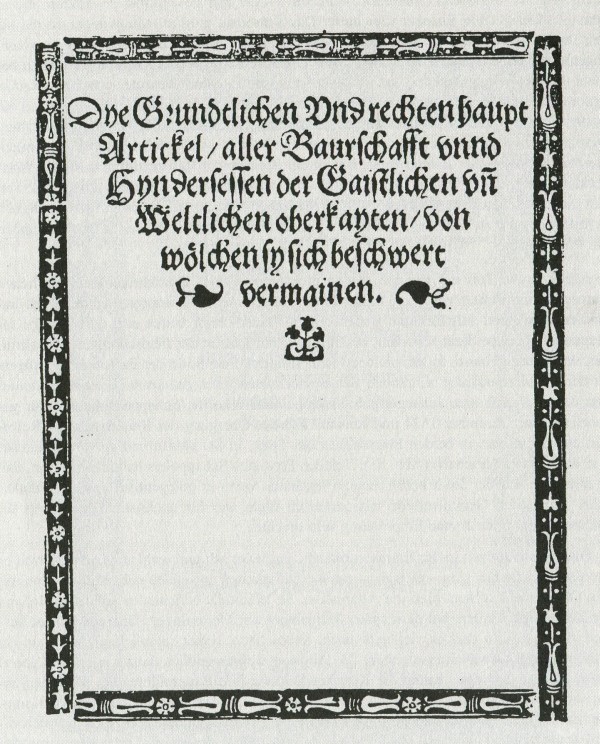 Dye Grundtlichen Vnd rechten haupt
Artickel/ aller Baurschafft vnnd
Hyndersessen der Gaistlichen vñ
Weltlichen oberkayten/ von
wölchen sy sich beschwert
vermainen.